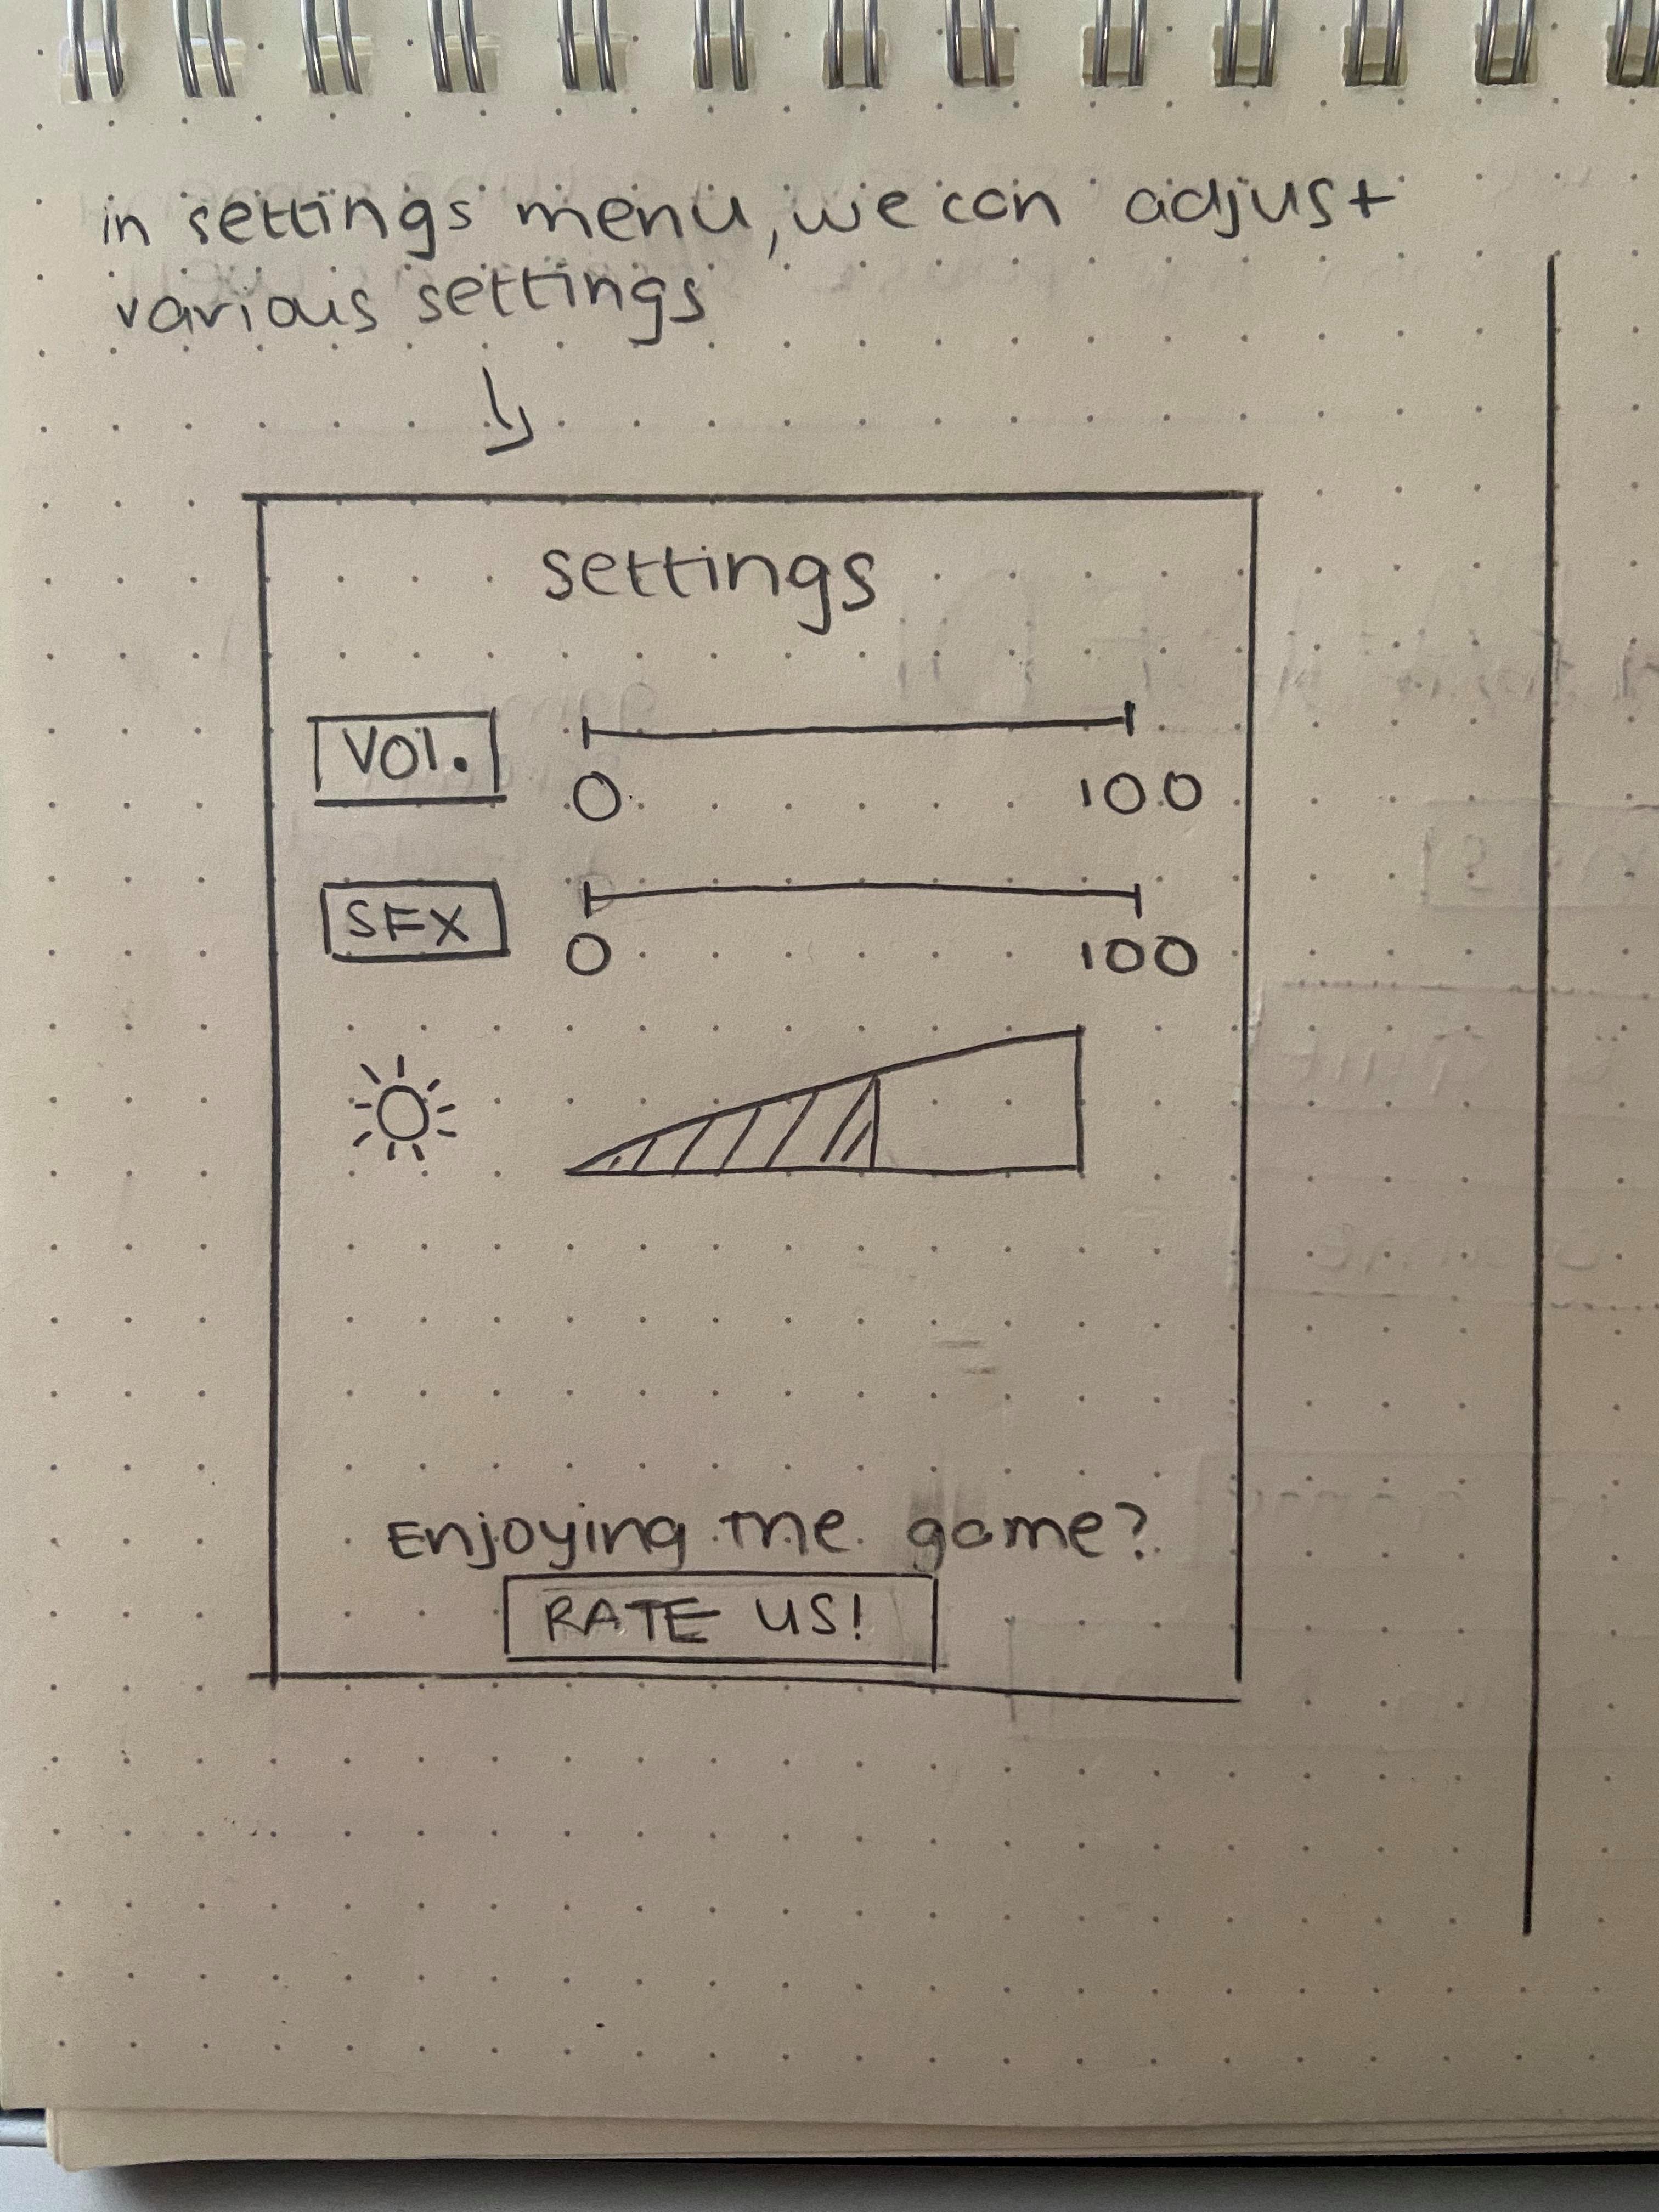 in settings menu, we can adjust
various settings
settings
VOl.
0 100
SFX
0 100
Enjoying the game?
RATE US!